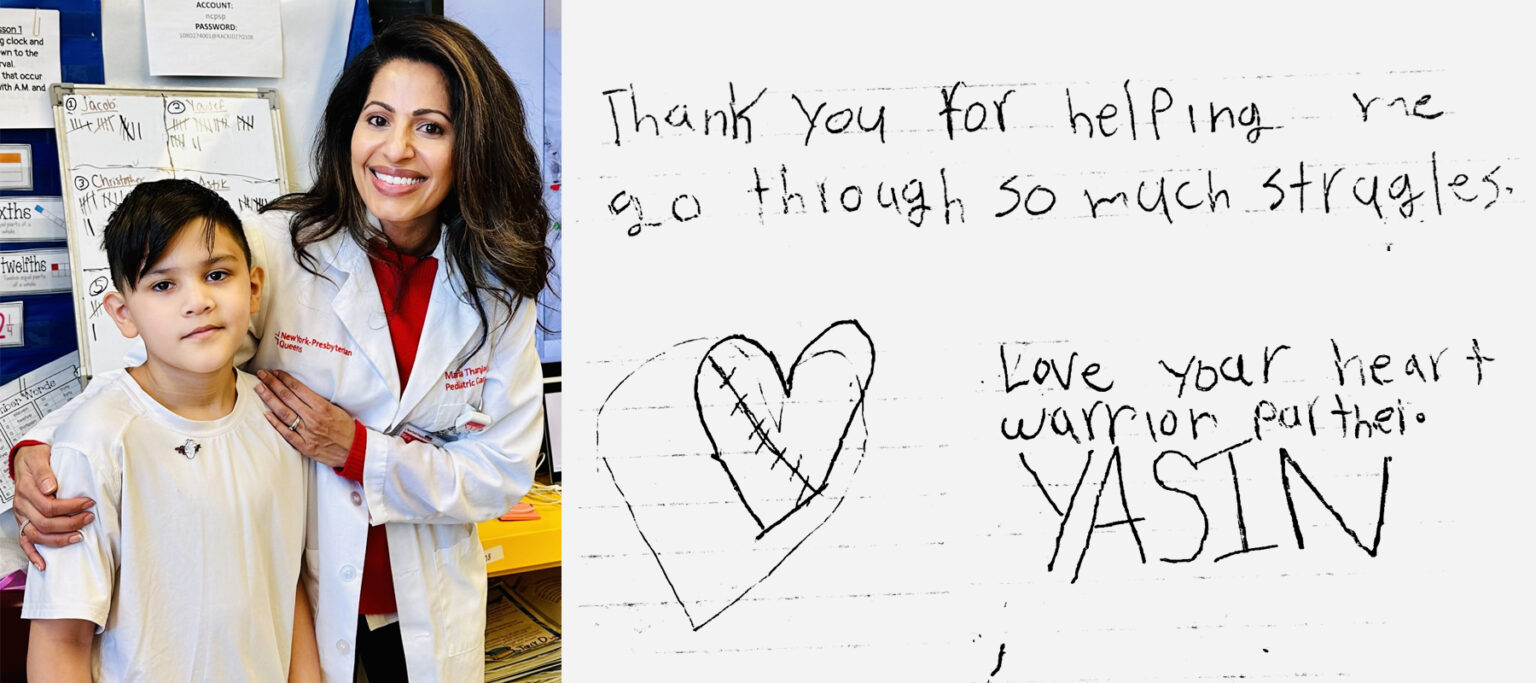 ACCOUNT:
ncpsp
PASSWORD:
sson 1
g clock and
wn to the
rval.
that occur
with A.M. and
① Jacob
② Yousef
③ Christopher
⑤
xths
twelfths
New York-Presbyterian
Queens
Maria Thanj
Pediatric Car
Thank you for helping me
go through so much strugles.
Love your heart
warrior parther.
YASIN